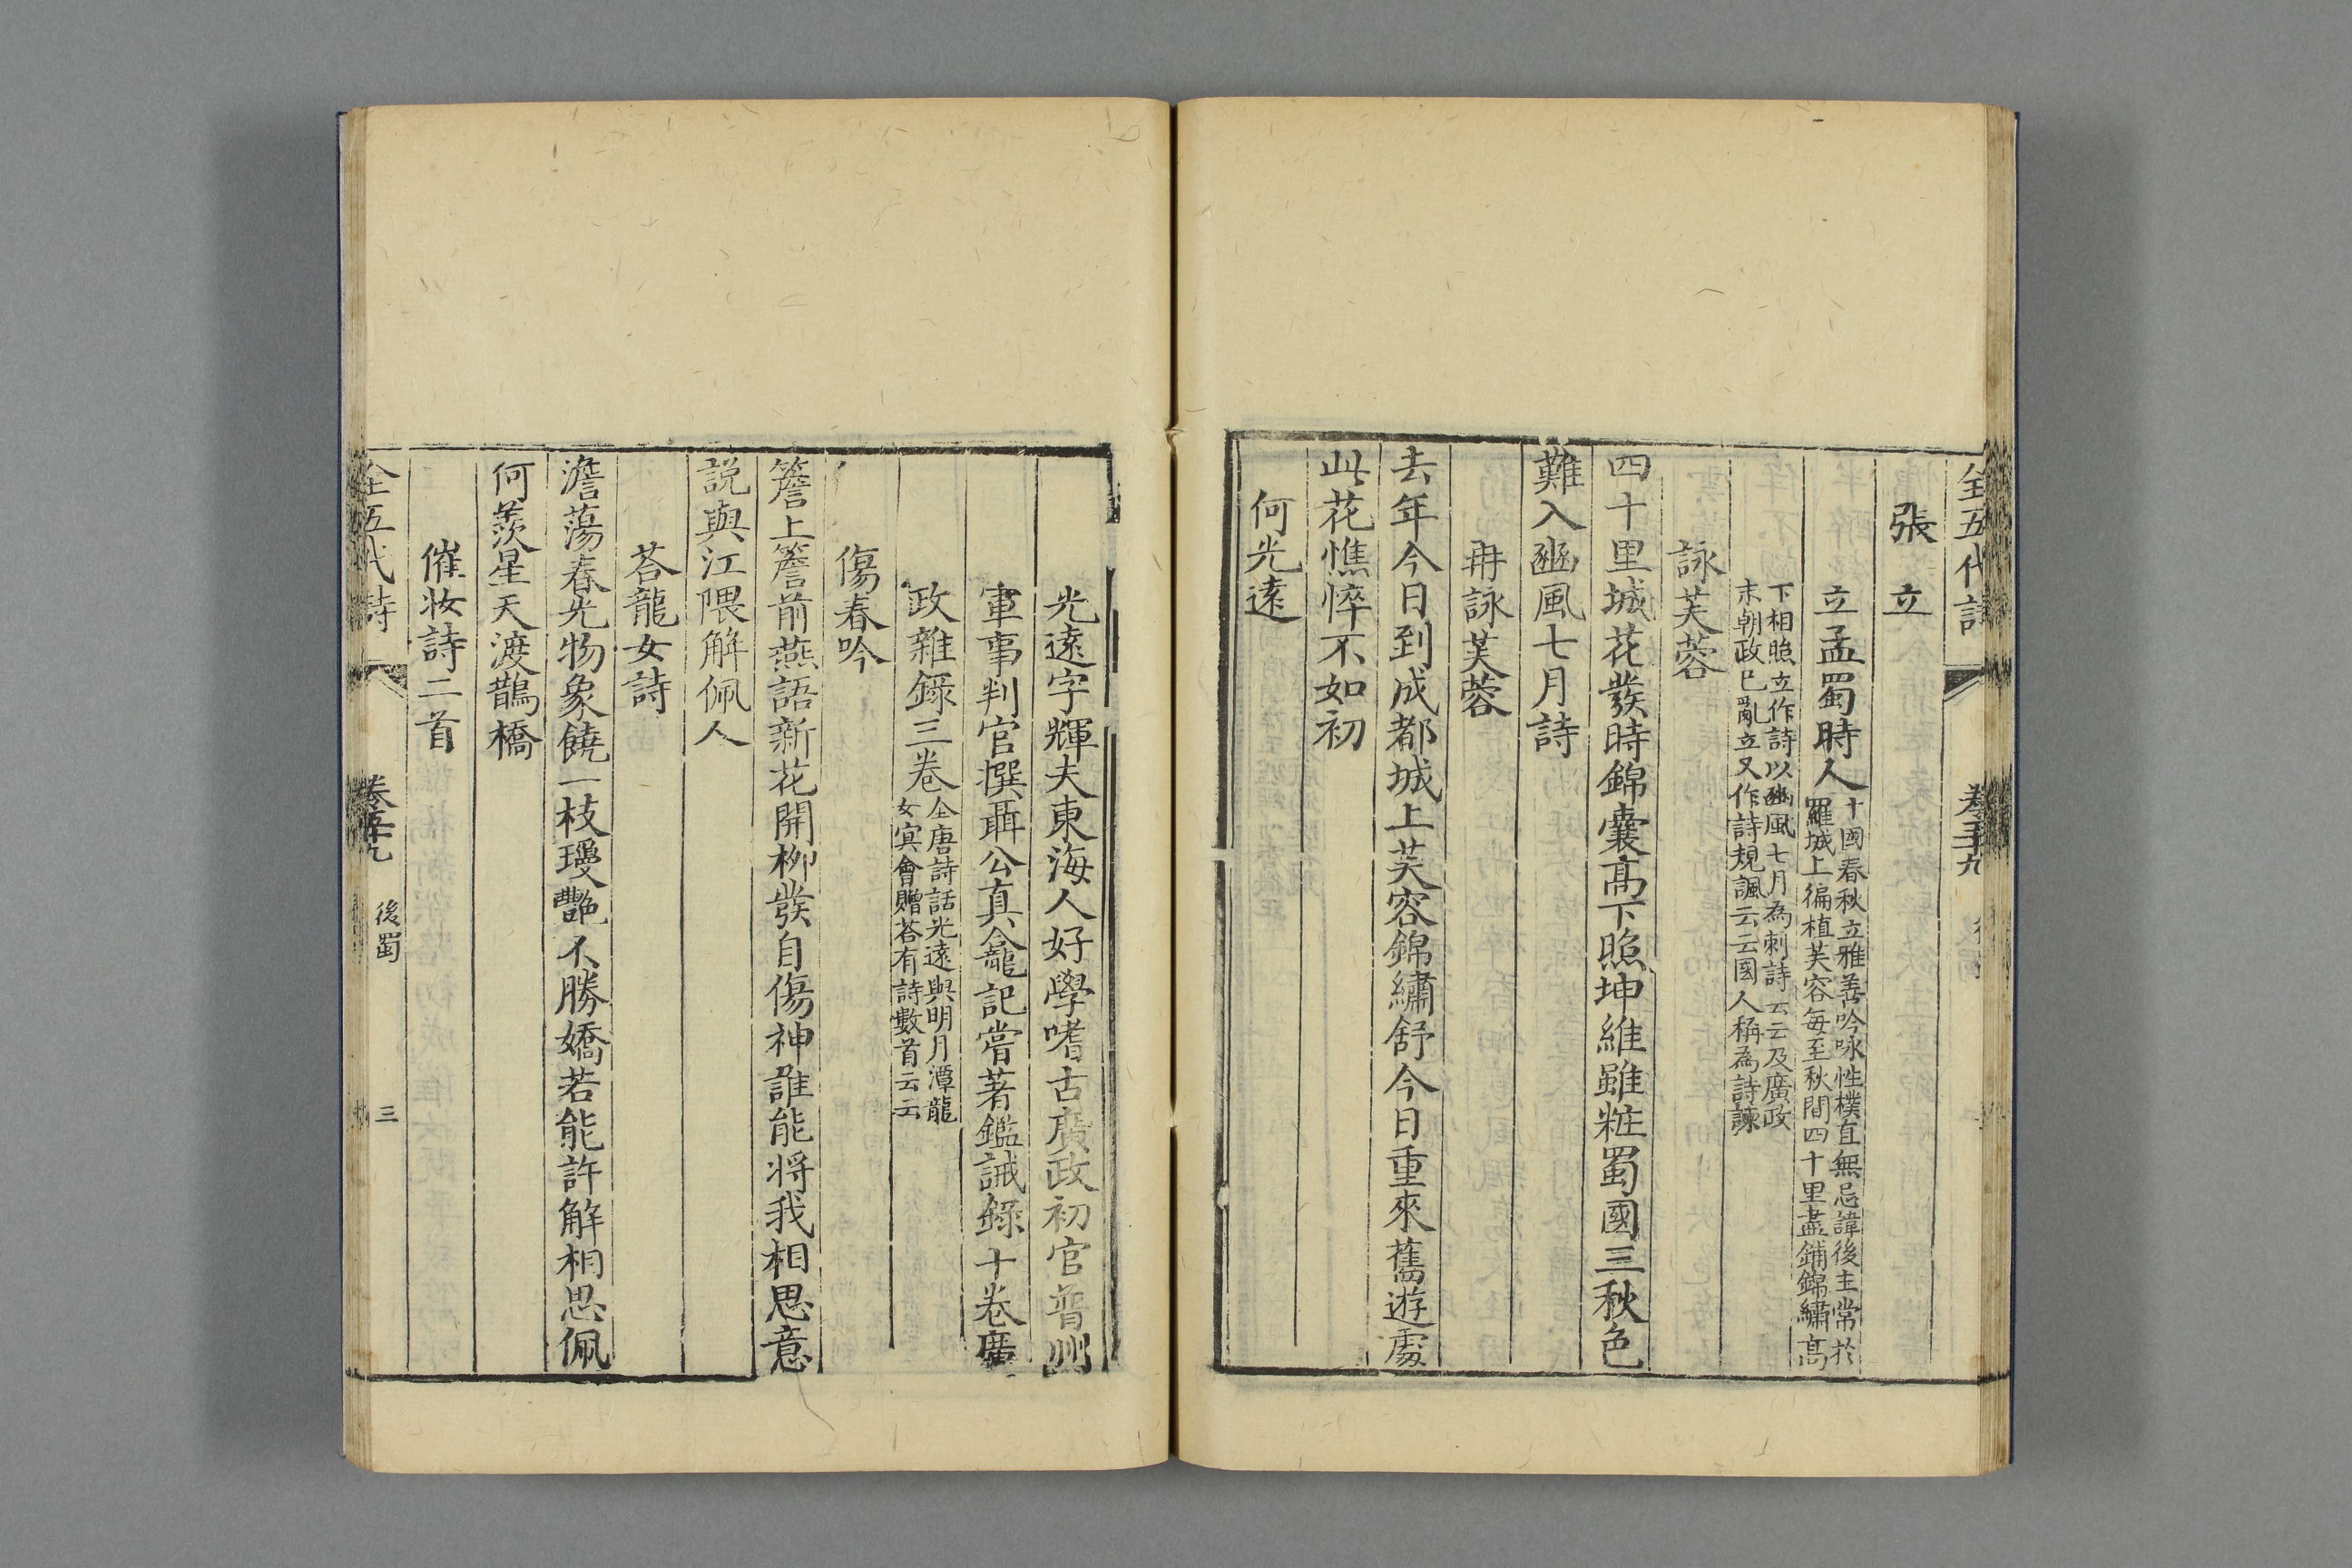 全五代詩
張立
立孟蜀時人十國春秋立雅善吟咏性樸直無忌諱後主常於
羅城上徧植芙容每至秋間四十里盡鋪錦繡高
下相照立作詩以豳風七月為刺詩云云及廣政
末朝政已亂立又作詩規諷云云國人稱為詩諫
詠芙蓉
四十里城花發時錦囊高下照坤維雖粧蜀國三秋色
難入豳風七月詩
冉詠芙蓉
去年今日到成都城上芙容錦繡舒今日重來舊遊處
此花憔悴不如初
何光遠
光遠字輝夫東海人好學嗜古廣政初官普州
軍事判官撰聶公真龕記嘗著鑑誡錄十卷廣
政雜錄三卷全唐詩話光遠與明月潭龍
女㝠會贈荅有詩數首云云
傷春吟
簷上簷前燕語新花開柳發自傷神誰能将我相思意
説與江隈解佩人
荅龍女詩
澹蕩春光物象饒一枝瓊艷不勝嬌若能許解相思佩
何羨星天渡鵲橋
催妝詩二首
全五代詩
卷五十九
後蜀
三